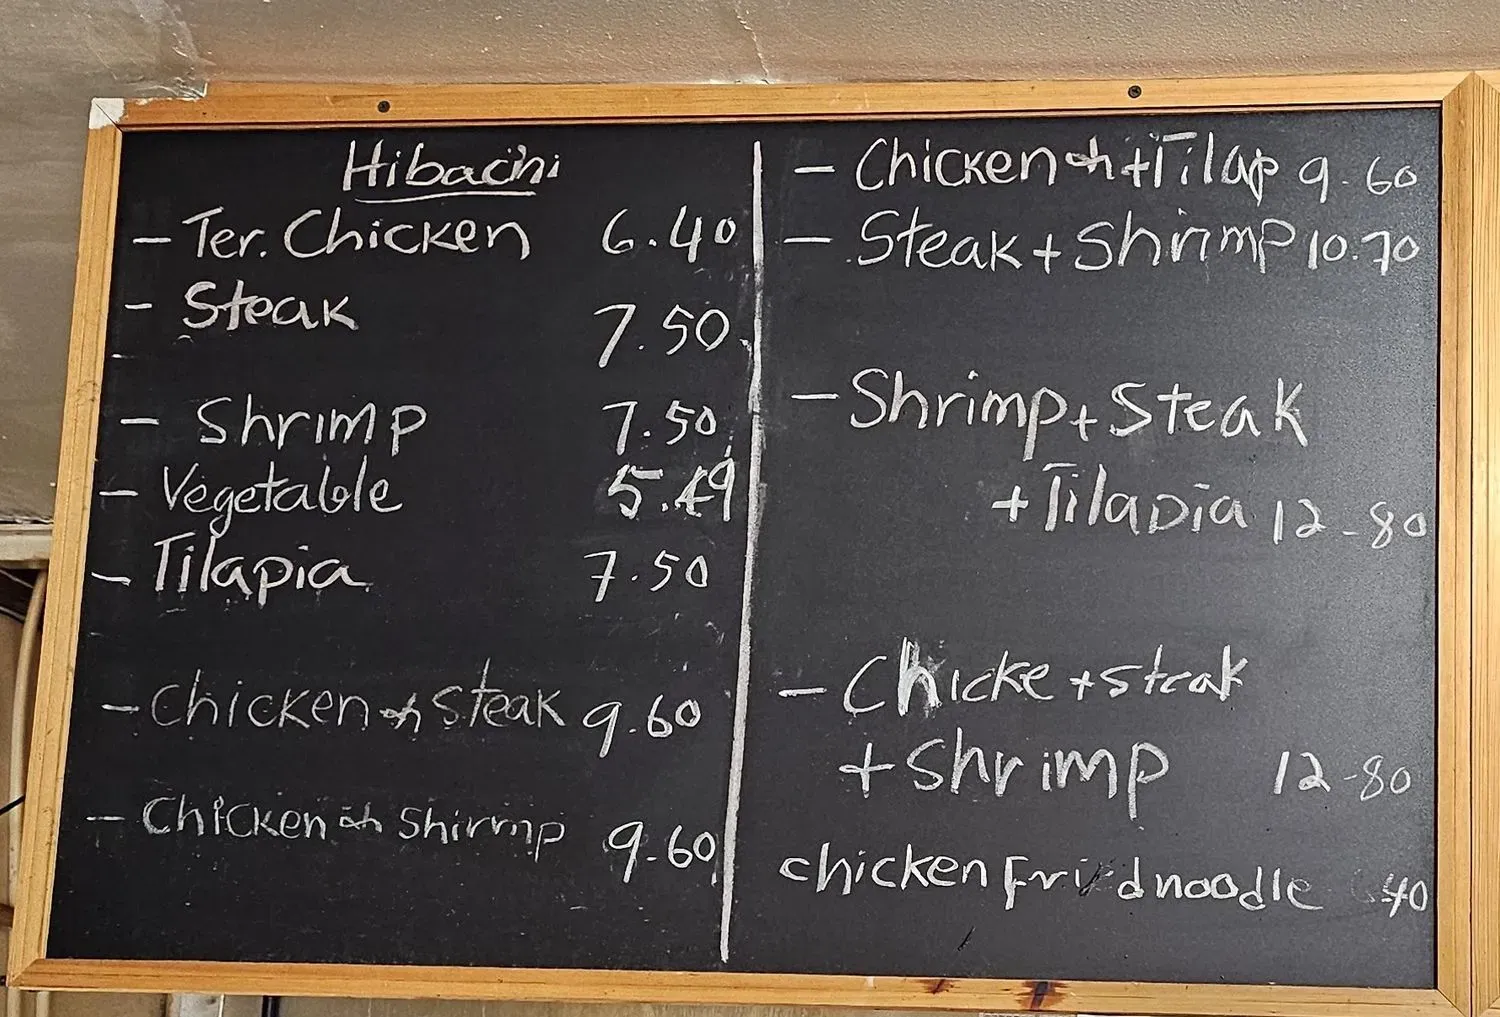 Hibachi
- Ter. Chicken 6.40
- Steak 7.50
- Shrimp 7.50
- Vegetable 5.49
- Tilapia 7.50
- Chicken + Steak 9.60
- Chicken + Shirmp 9.60
- Chicken + Tilap 9.60
- Steak + Shrimp 10.70
- Shrimp + Steak
+ Tilapia 12-80
- Chicke + steak
+ Shrimp 12-80
chicken Fri dnoodle 40